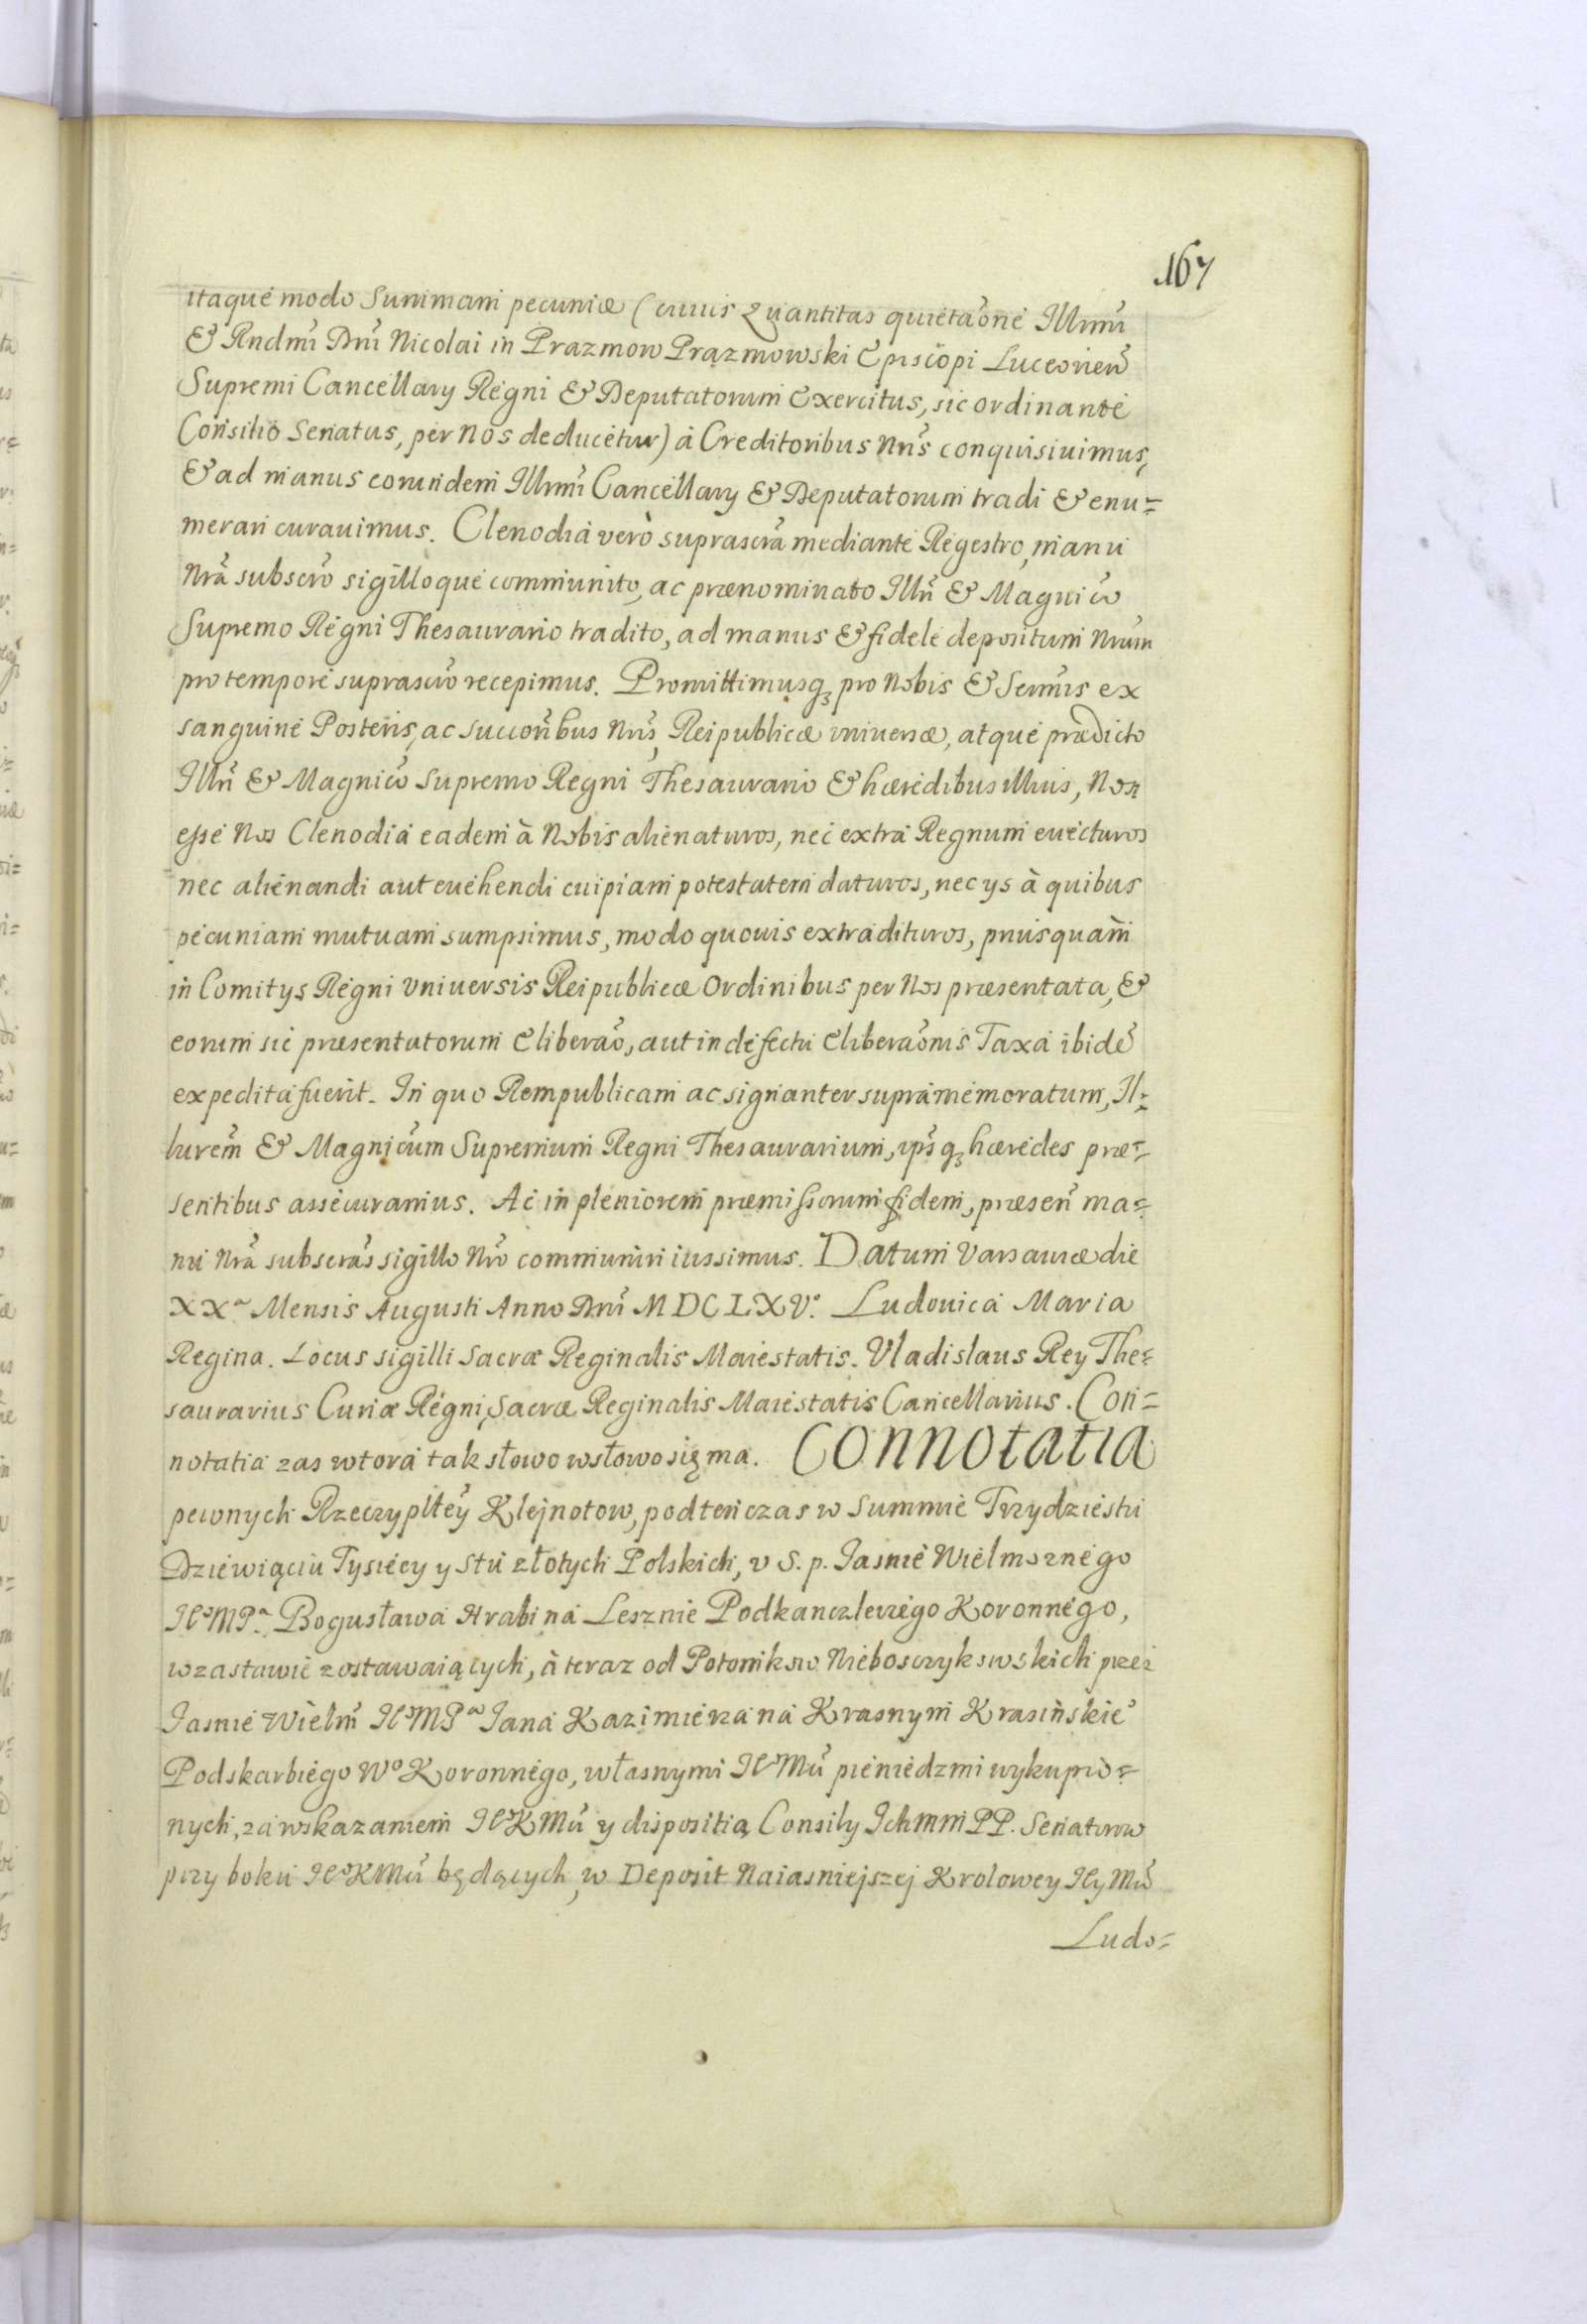 167
itaque modo Summam pecuniæ (cuius Quantitas quieta͠one Illmi͠
& Rndmi͠ Dni͠ Nicolai in Prazmow Prązmowski Episcopi Luceorien͠
Supremi Cancellary Regni & Deputatorum Exercitus, sic ordinante
Consilio Senatus, per Nos deducetur) à Creditoribus Nris͠ conquisiuimus,
& ad manus eorundem Illmi͠ Cancellary & Deputatorum tradi & enu=
merari curauimus. Clenodia verò suprascra͠ mediante Regestro, manu
Nra͠ subscro͠ sigilloque communito, ac prænominato Illri͠ & Magnico͠
Supremo Regni Thesaurario tradito, ad manus & fidele depositum Nrum͠
pro tempore suprascro͠ recepimus. Promittimusqꝫ pro Nobis & Sermis͠ ex
sanguine Posteris, ac succoribus͠ Nris͠, Reipublicæ vniuersæ, atque prædicto
Illri͠ & Magnico͠ Supremo Regni Thesaurario & hæredibus illius, Non
esse Nos Clenodia eadem à Nobis alienaturos, nec extra Regnum euecturos
nec alienandi aut euehendi cuipiam potestatem daturos, nec ys à quibus
pecuniam mutuam sumpsimus, modo quouis extradituros, priusquàm
in Comitys Regni Vniuersis Reipublicæ Ordinibus per Nos præsentata, &
eorum sic præsentatorum Elibera͠o, aut in defectu Elibera͠onis Taxa ibide͠
expedita fuerit. In quo Rempublicam ac signanter supramemoratum, Il=
lurem͠ & Magnicum͠ Supremum Regni Thesaurarium, ipsi͠qꝫ hæredes præ=
sentibus assecuramus. Ac in pleniorem præmissorum fidem, præsen͠ ma=
nu Nra͠ subscras͠ sigillo Nro͠ communiri iussimus. Datum Varsauiæ die
XXa Mensis Augusti Anno Dni͠ MDCLXVo. Ludouica Maria
Regina. Locus sigilli Sacræ Reginalis Maiestatis. Vladislaus Rey The=
saurarius Curiæ Regni, Sacræ Reginalis Maiestatis Cancellarius. Con=
notatia zas wtora tak słowo wsłowo się ma. Connotatia
pewnych Rzeczyplltey͠ Klejnotow, podtenczas w Summie Trzydziestu
Dziewiąciu Tysięcy y stu złotych Polskich, v S. p. Jasnie Wielmoznego
JeoMPa. Bogusława Hrabi na Lesznie Podkanczlerzego Koronnego,
wzastawie zostawaiących, à teraz od Potomkow Nieboszczykowskich przez
Jasnie Wielm͠ JeoMPa Jana Kazimierza na Krasnym Krasinskie͠
Podskarbiego Wo Koronnego, własnymi JeoMci͠ pieniedzmi wykupio=
nych, za wskazaniem JeoKMci͠ y dispositią Consily Ichmm PP. Senatorow
przy boku JeoKMci͠ będących, w Deposit Naiasniejszej Krolowey JeyMci͠
Ludo=